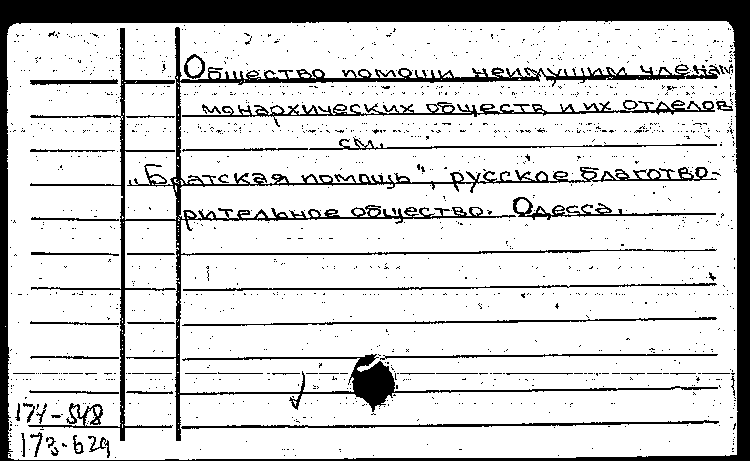 Общество помощи неимущим членам
монархических обществ и их отделов
см.
"Братская помощь", русское благотво-
рительное общество. Одесса.
174-548
173-629